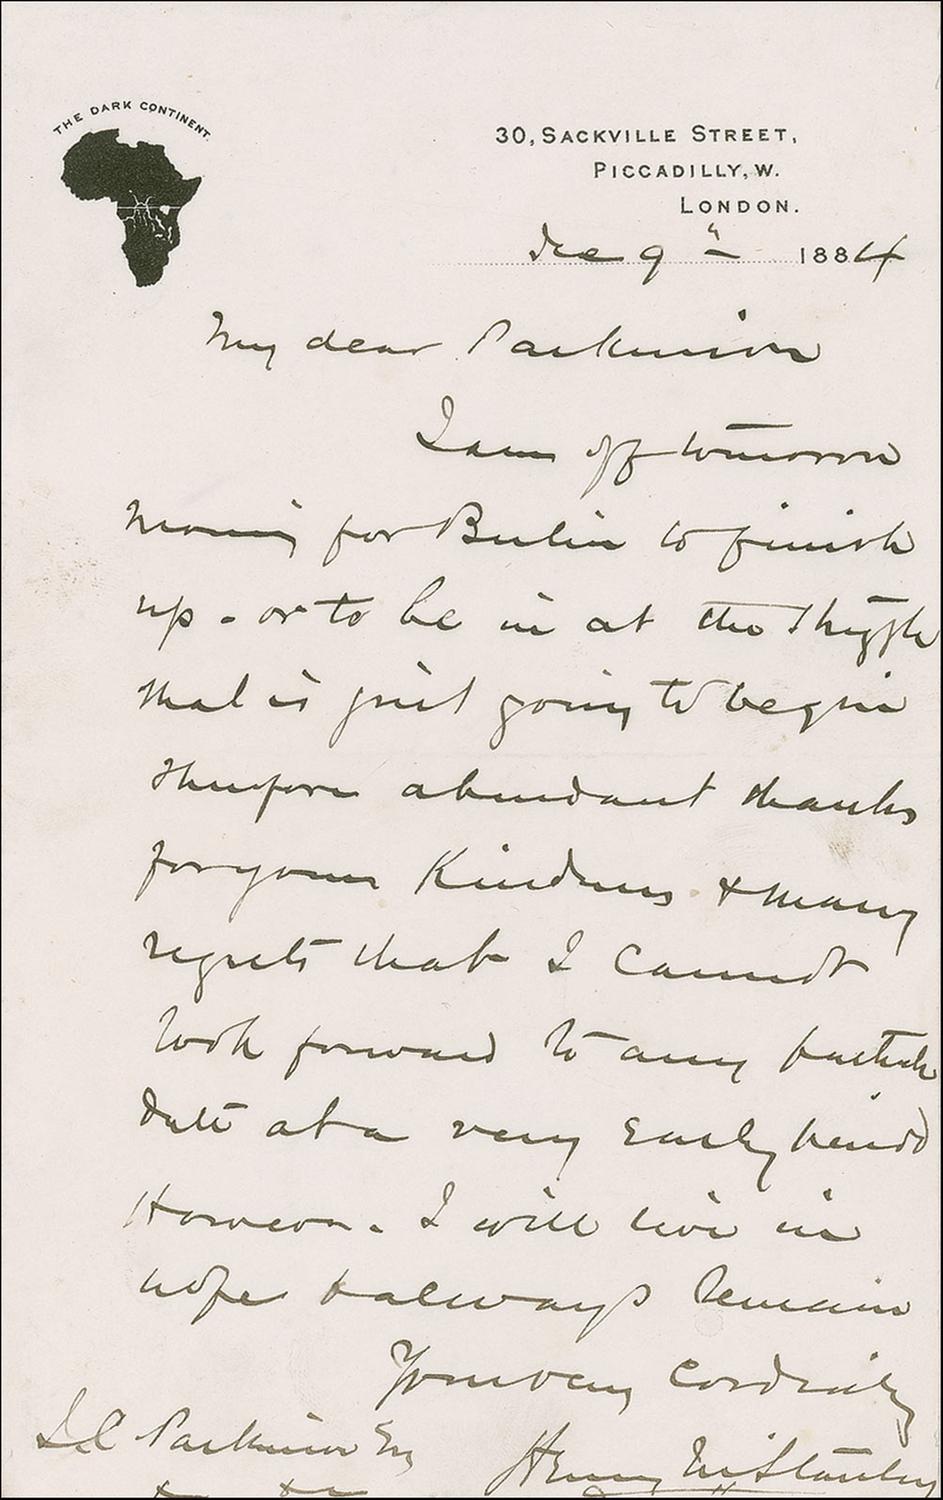 THE DARK CONTINENT.
30, SACKVILLE STREET,
PICCADILLY, W.
LONDON.
Dec 9th 1884
My dear Parkinson
I am off tomorrow
morning for Berlin to finish
up - or to be in at the
that is just going to begin
therefore abundant thanks
for your kindness & many
regrets that I cannot
look forward to any
date at a very early period
However - I will live in
hope & always remain
Yours very cordially
Parkinson Esq Henry M. Stanley